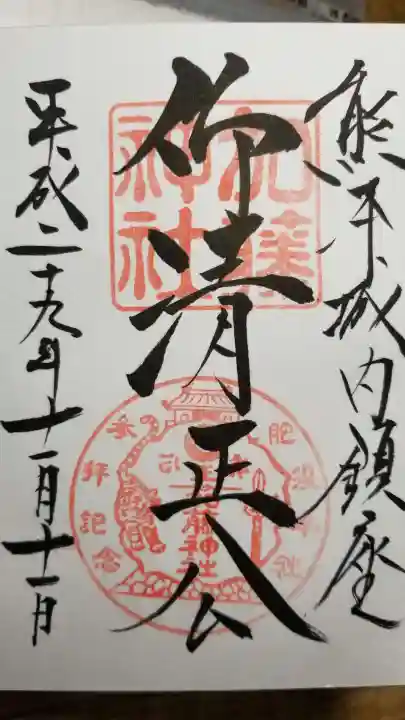 熊本城内鎮座
仰清正公
平成二十九年十一月十一日
加藤
神社
加藤神社
参拝記念